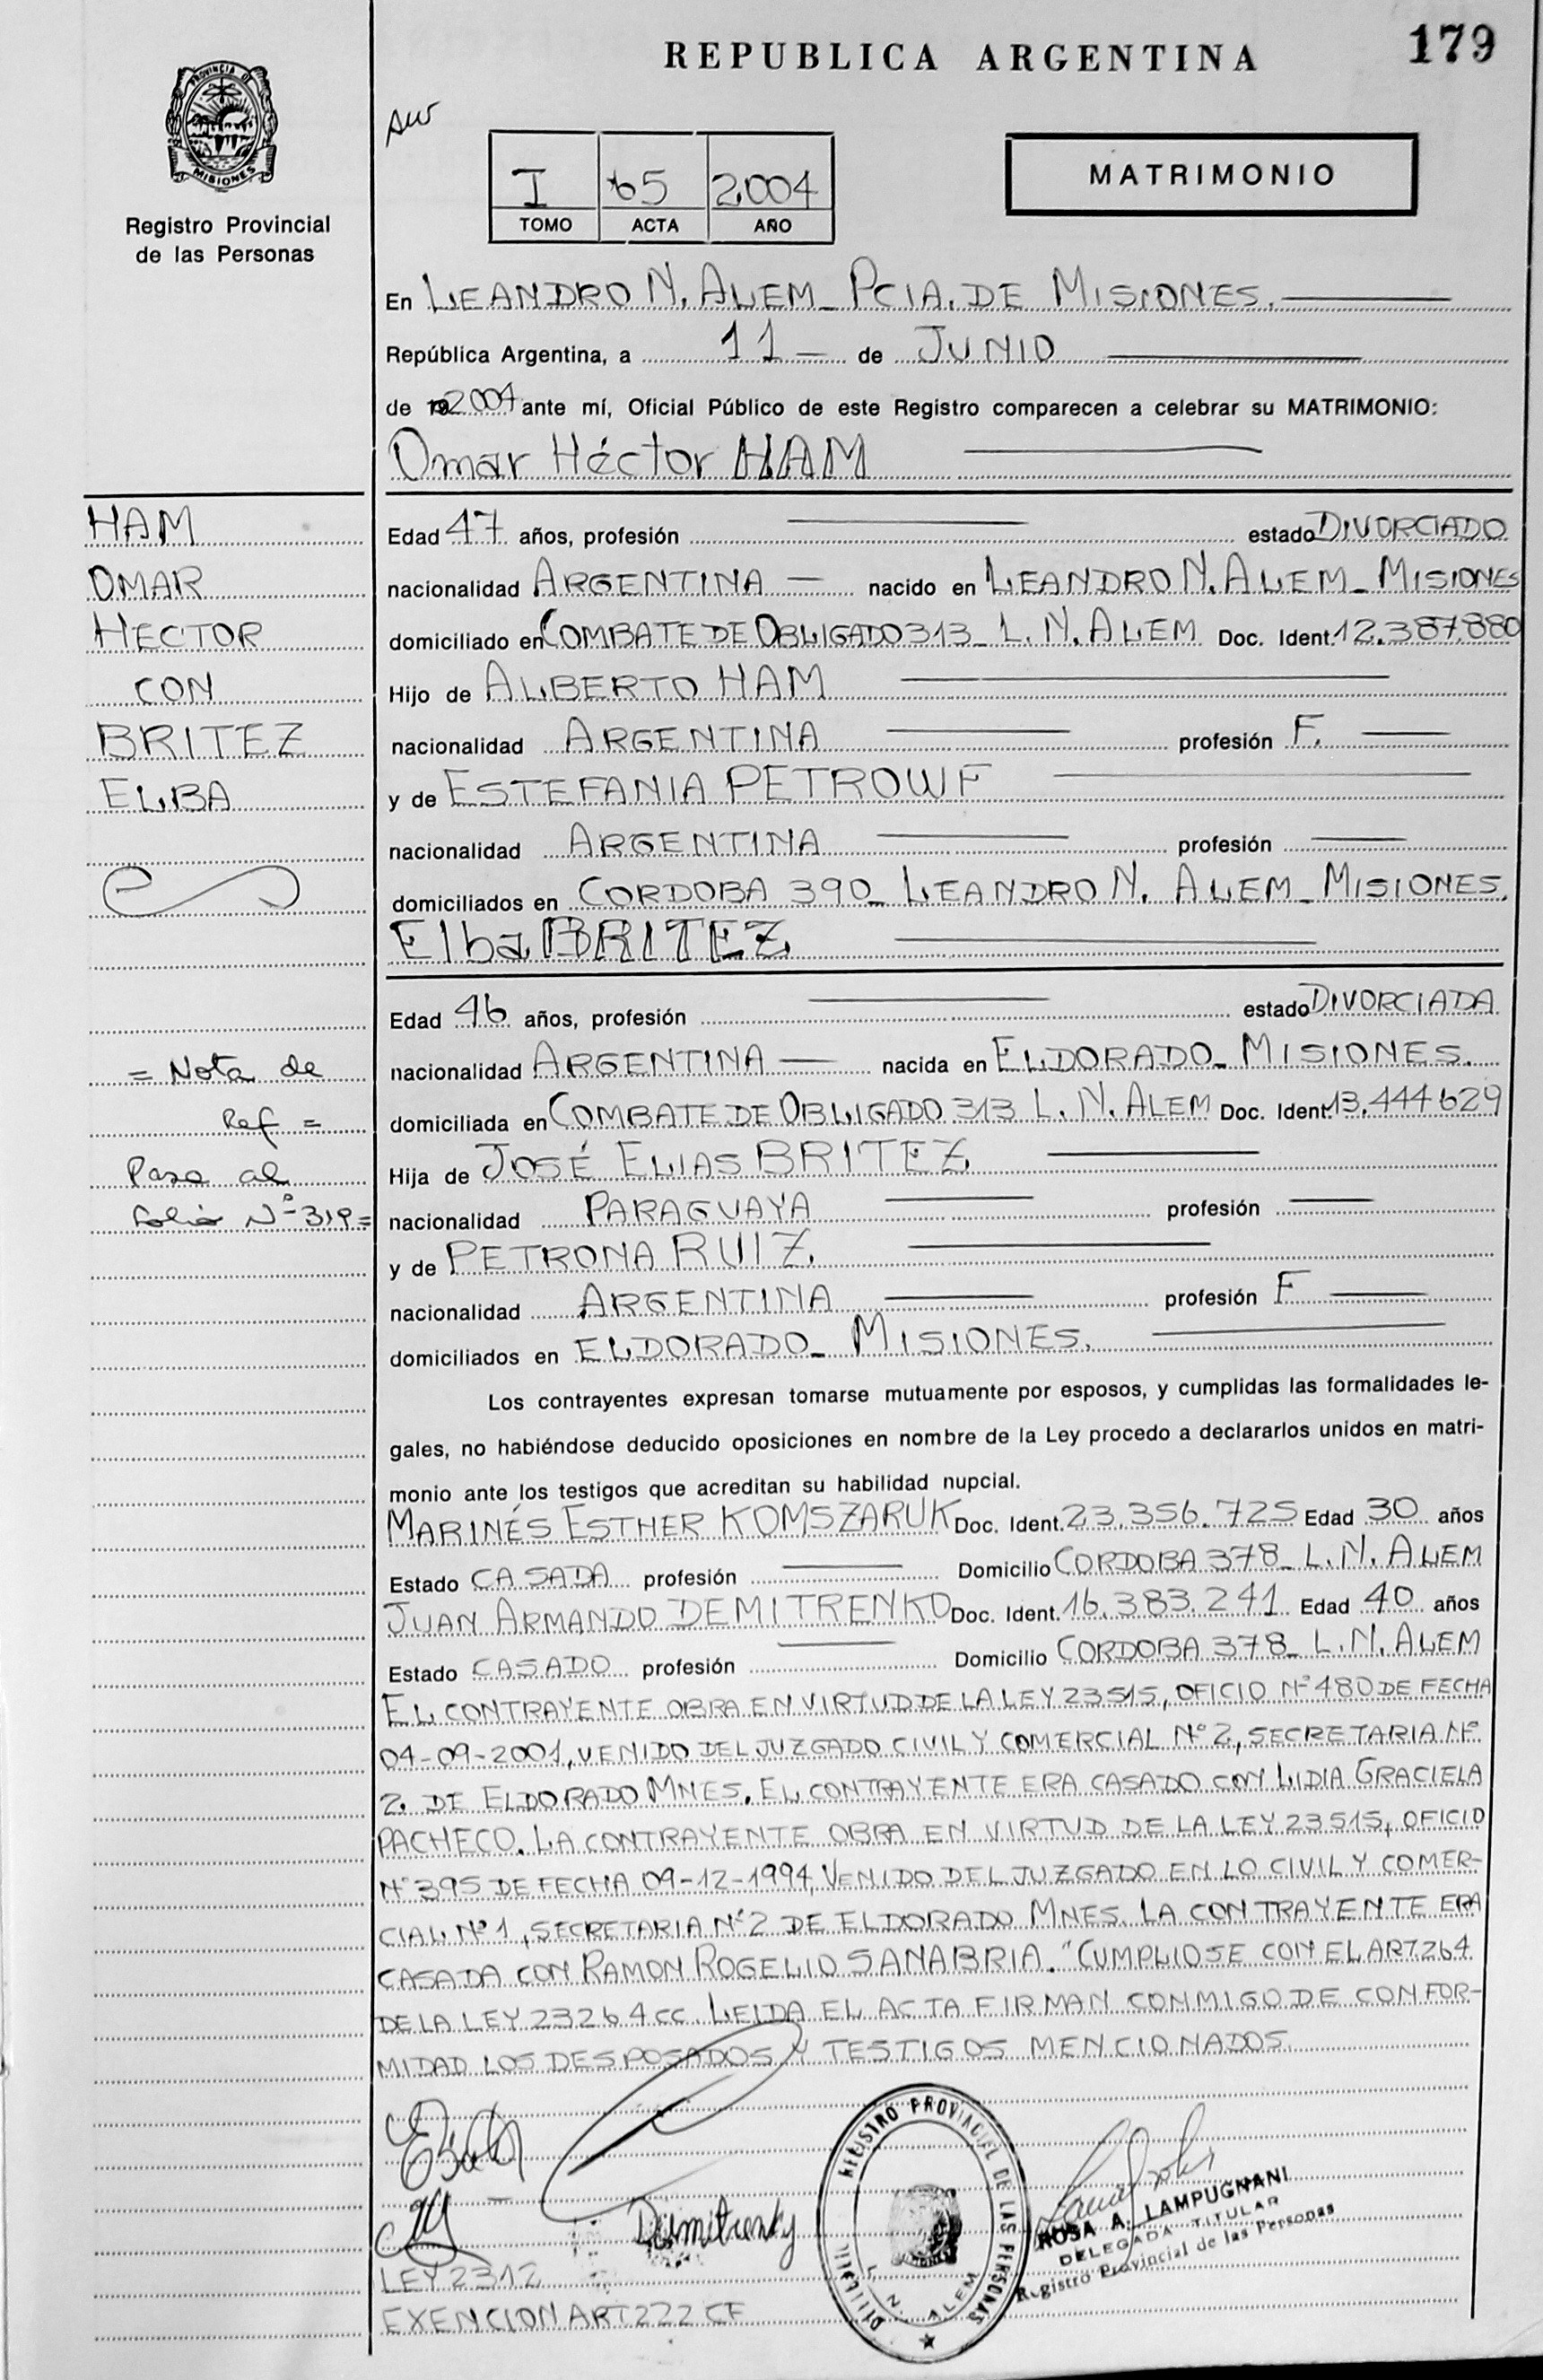 REPUBLICA ARGENTINA
179
PROVINCIA DE
MISIONES
Registro Provincial
de las Personas
I 65 2004
TOMO ACTA AÑO
MATRIMONIO
En LEANDRO N. ALEM_ PCIA. DE MISIONES.
República Argentina, a 11 — de JUNIO
de 19 2004 ante mí, Oficial Público de este Registro comparecen a celebrar su MATRIMONIO:
Omar Héctor HAM
HAM
OMAR
HECTOR
CON
BRITEZ
ELBA
Edad 47 años, profesión — estado DIVORCIADO
nacionalidad ARGENTINA — nacido en LEANDRO N. ALEM_ MISIONES
domiciliado en COMBATE DE OBLIGADO 313_ L. N. ALEM Doc. Ident. 12.387.880
Hijo de ALBERTO HAM
nacionalidad ARGENTINA — profesión F. —
y de ESTEFANIA PETROWF
nacionalidad ARGENTINA — profesión —
domiciliados en CORDOBA 390_ LEANDRO N. ALEM_ MISIONES.
Elba BRITEZ
= Nota de
Ref =
Pasa al
folio Nº 319=
Edad 46 años, profesión — estado DIVORCIADA
nacionalidad ARGENTINA — nacida en ELDORADO_ MISIONES.
domiciliada en COMBATE DE OBLIGADO 313 L. N. ALEM Doc. Ident. 13.444629
Hija de JOSÉ ELIAS BRITEZ
nacionalidad PARAGUAYA — profesión —
y de PETRONA RUIZ.
nacionalidad ARGENTINA — profesión F —
domiciliados en ELDORADO_ MISIONES.
Los contrayentes expresan tomarse mutuamente por esposos, y cumplidas las formalidades le-
gales, no habiéndose deducido oposiciones en nombre de la Ley procedo a declararlos unidos en matri-
monio ante los testigos que acreditan su habilidad nupcial.
MARINÉS ESTHER KOMSZARUK Doc. Ident. 23.356.725 Edad 30 años
Estado CASADA profesión — Domicilio CORDOBA 378_ L.N. ALEM
JUAN ARMANDO DEMITRENKO Doc. Ident. 16.383.241 Edad 40 años
Estado CASADO profesión — Domicilio CORDOBA 378_ L.N. ALEM
EL CONTRAYENTE OBRA EN VIRTUD DE LA LEY 23515, OFICIO Nº 480 DE FECHA
04-09-2001, VENIDO DEL JUZGADO CIVIL Y COMERCIAL Nº 2, SECRETARIA Nº
2. DE ELDORADO MNES. EL CONTRAYENTE ERA CASADO CON LIDIA GRACIELA
PACHECO. LA CONTRAYENTE OBRA EN VIRTUD DE LA LEY 23515, OFICIO
Nº 395 DE FECHA 09-12-1994, VENIDO DEL JUZGADO EN LO CIVIL Y COMER-
CIAL Nº 1, SECRETARIA Nº 2 DE ELDORADO MNES. LA CONTRAYENTE ERA
CASADA CON RAMON ROGELIO SANABRIA. "CUMPLIOSE CON EL ART. 264
DE LA LEY 23264 CC. LEIDA EL ACTA FIRMAN CONMIGO DE CONFOR-
MIDAD LOS DESPOSADOS Y TESTIGOS MENCIONADOS.
REGISTRO PROVINCIAL DE LAS PERSONAS
L. N. ALEM
ROSA A. LAMPUGNANI
DELEGADA TITULAR
Registro Provincial de las Personas
LEY 2312
EXENCION ART 222 CF